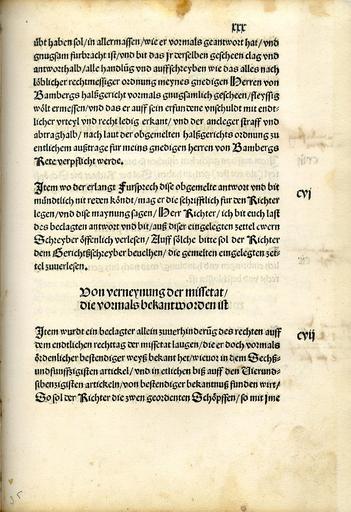 xxx
übt haben sol/in allermassen/wie er vormals geantwort hat/vnd
gnugsam fürbracht ist/vnd bit das jr derselben gescheen clag vnd
antworthalb/alle handlüg vnd auffschreyben wie das alles nach
löblicher rechtmessiger ordnung meynes gnedigen Herren von
Bambergs halßgericht vormals gnugsamlich gescheen/fleyssig
wölt ermessen/vnd das er auff sein erfundene vnschuldt mit endt-
licher vrteyl vnd recht ledig erkant/vnd der ancleger straff vnd
abtraghalb/nach laut der obgemelten halßgerichts ordnung zu
entlichem außtrage für meins gnedigen herren von Bambergs
Rete verpflicht werde.
Jtem wo der erlangt Fursprech dise obgemelte antwort vnd bit
mündtlich nit reden köndt/mag er die schrifftlich für den Richter
legen/vnd dise maynung sagen/Herr Richter/ich bit euch last
des beclagten antwort vnd bit/auß diser eingelegten zettel ewern
Schreyber öffenlich verlesen/Auff sölche bitte sol der Richter
dem Gerichtschreyber beuelhen/die gemelten eingelegten zet-
tel zuuerlesen.
cvj
Von verneynung der missetat/
die vormals bekant worden ist
Jtem wurdt ein beclagter allein zuuerhinderüg des rechten auff
dem endtlichen rechttag der missetat laugen/die er doch vormals
ördenlicher bestendiger weyß bekant het/wieuor in dem Sechß-
undfunffzigisten artickel/vnd in etlichen biß auff den Vierund-
sibenzigisten artickeln/von bestendiger bekantnuß funden wirt/
So sol der Richter die zwen geordenten Schöpffen/so mit jme
cvij